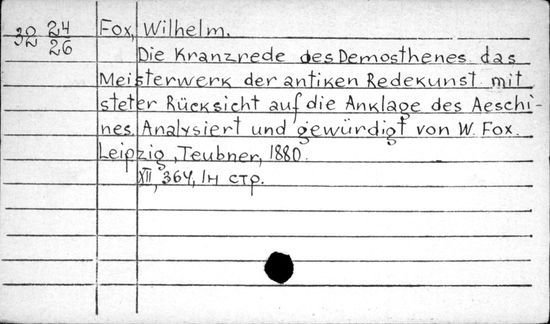 32 24/26
Fox, Wilhelm.
Die Kranzrede des Demosthenes das
Meisterwerk der antiken Redekunst mit
steter Rücksicht auf die Anklage des Aeschi-
nes. Analysiert und gewürdigt von W. Fox.
Leipzig, Teubner, 1880.
XII, 364, 1н стр.